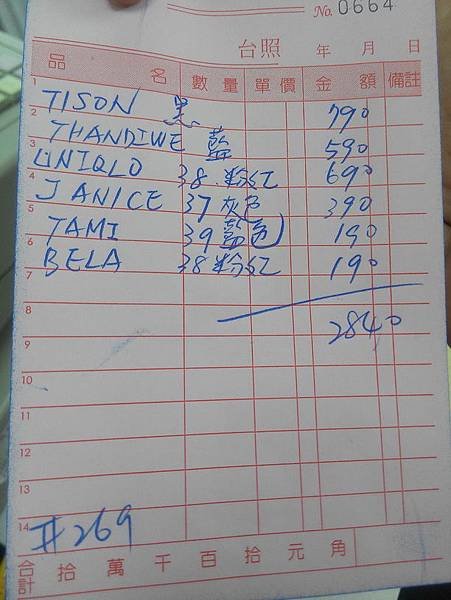 No. 0664
台照 年 月 日
品名 數量 單價 金額 備註
1 TISON 黑 790
2 THANDIWE 藍 590
3 UNIQLO 38 粉紅 690
4 JANICE 37 灰色 390
5 TAMI 39 藍色 190
6 BELA 38 粉紅 190
7
8 2840
9
10
11
12
13
14 #269
合計 拾 萬 千 百 拾 元 角